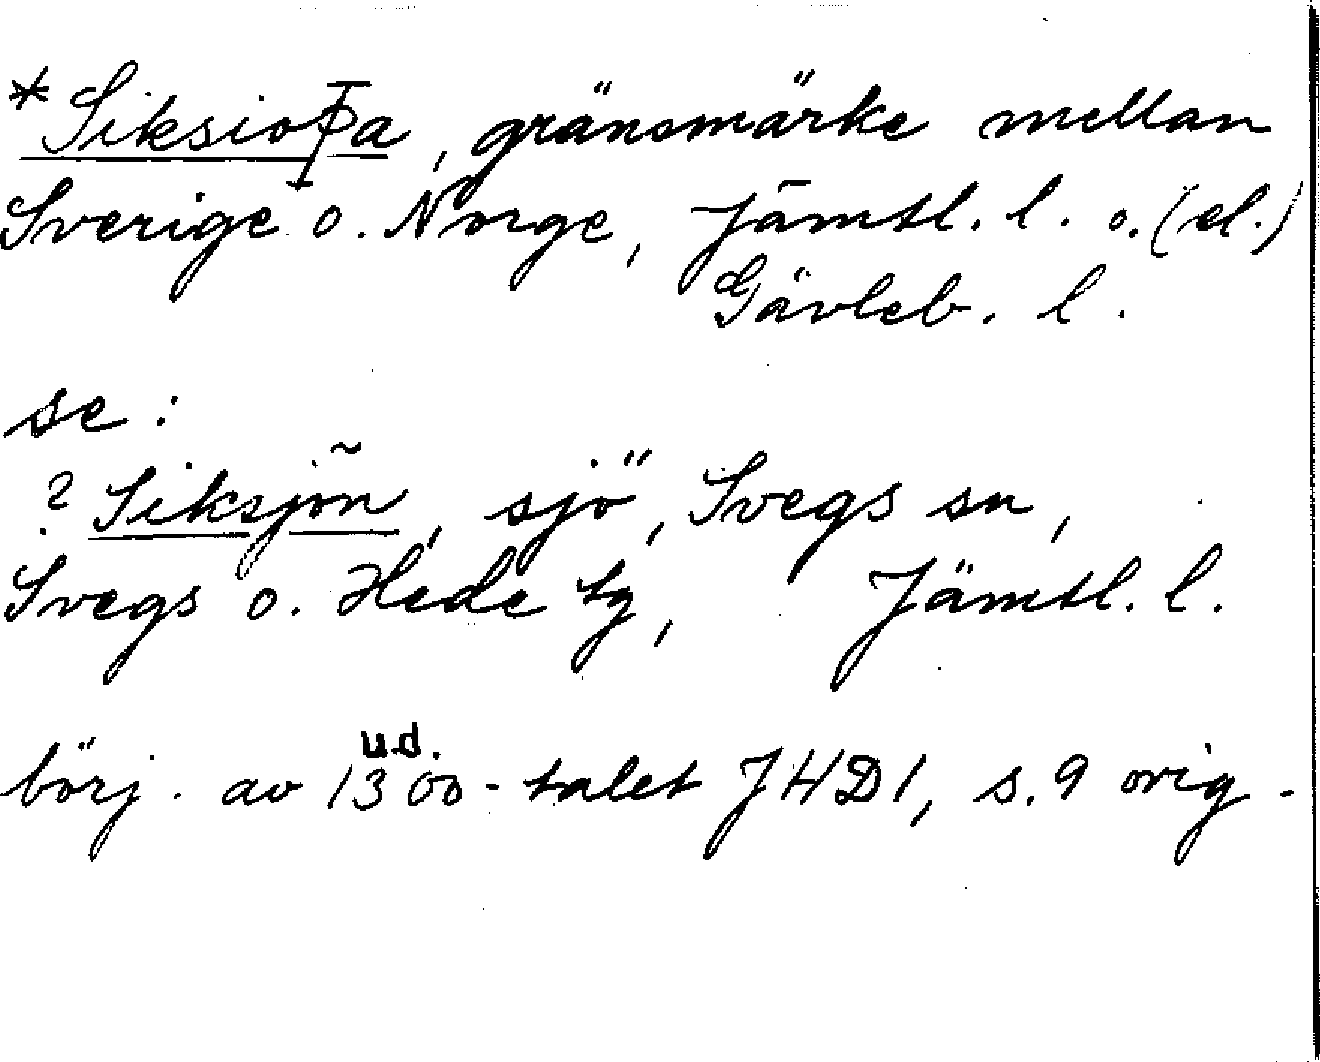 *Siksioþa, gränsmärke mellan
Sverige o. Norge, Jämtl. l. o. (el.)
Gävleb. l.
se:
? Siksjön, sjö, Svegs sn,
Svegs o. Hede tg, Jämtl. l.
u.d.
börj. av 1300-talet JHD1, s. 9 orig.